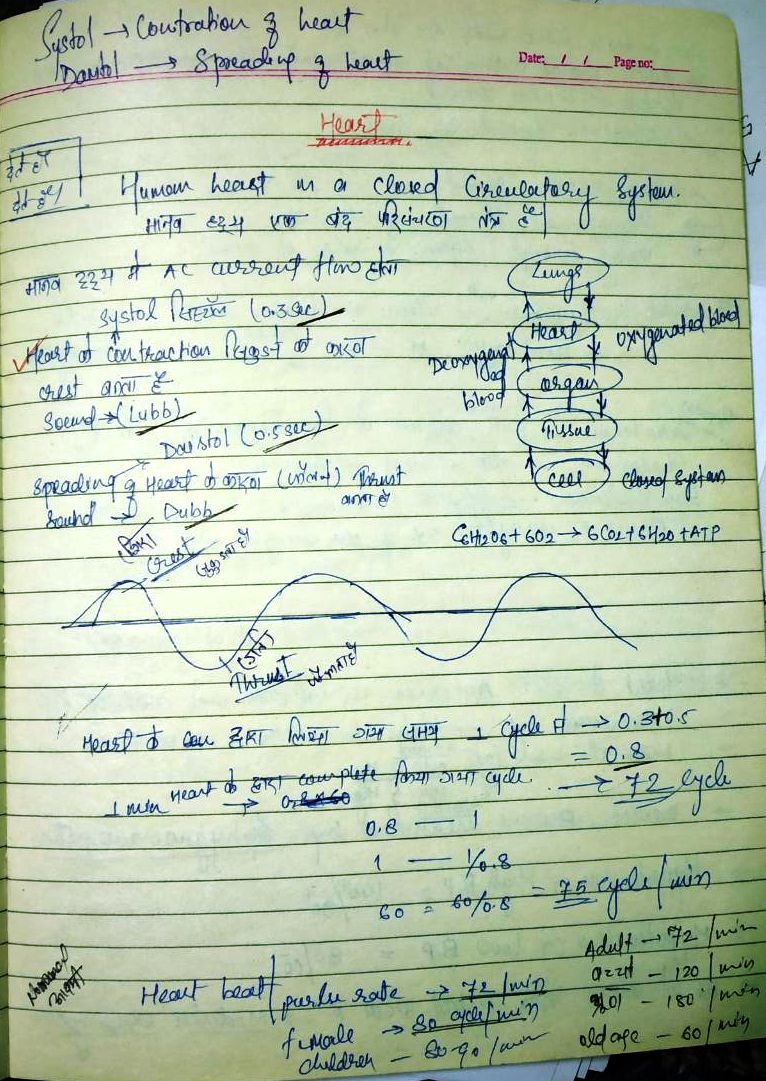 Systol → Contration of heart
Daistol → Spreading of heart
Date: / / Page no:
Heart
देते हैं
देते हैं।
Human heart in a closed Circulatory System.
मानव हृदय एक बंद परिसंचरण तंत्र है।
मानव हृदय में AC current flow होता
Systol (0.3sec)
Heart के contraction के कारण
crest बनता है
Sound → (Lubb)
Daistol (0.5sec)
Spreading of Heart के कारण Thrust
बनता है
Sound → Dubb
Lungs
Heart
oxygenated blood
Deoxygenated
blood
organ
Tissue
cell
closed system
C6H12O6 + 6O2 → 6CO2 + 6H2O + ATP
Crest
Thrust
Heart के द्वारा लिया गया समय 1 cycle में → 0.3+0.5
= 0.8
1 min Heart के द्वारा complete किया गया cycle. → 72 cycle
→ 0.8×60
0.8 — 1
1 — 1/0.8
60 = 60/0.8 = 75 cycle/min
Heart beat/ rate → 72/min
female → 80 cycle/min
children — 80-90/min
Adult → 72/min
बच्चा — 120/min
— 180/min
old age — 60/min